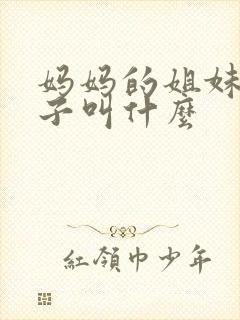 妈妈的姐妹
子叫什麼
紅領巾少年